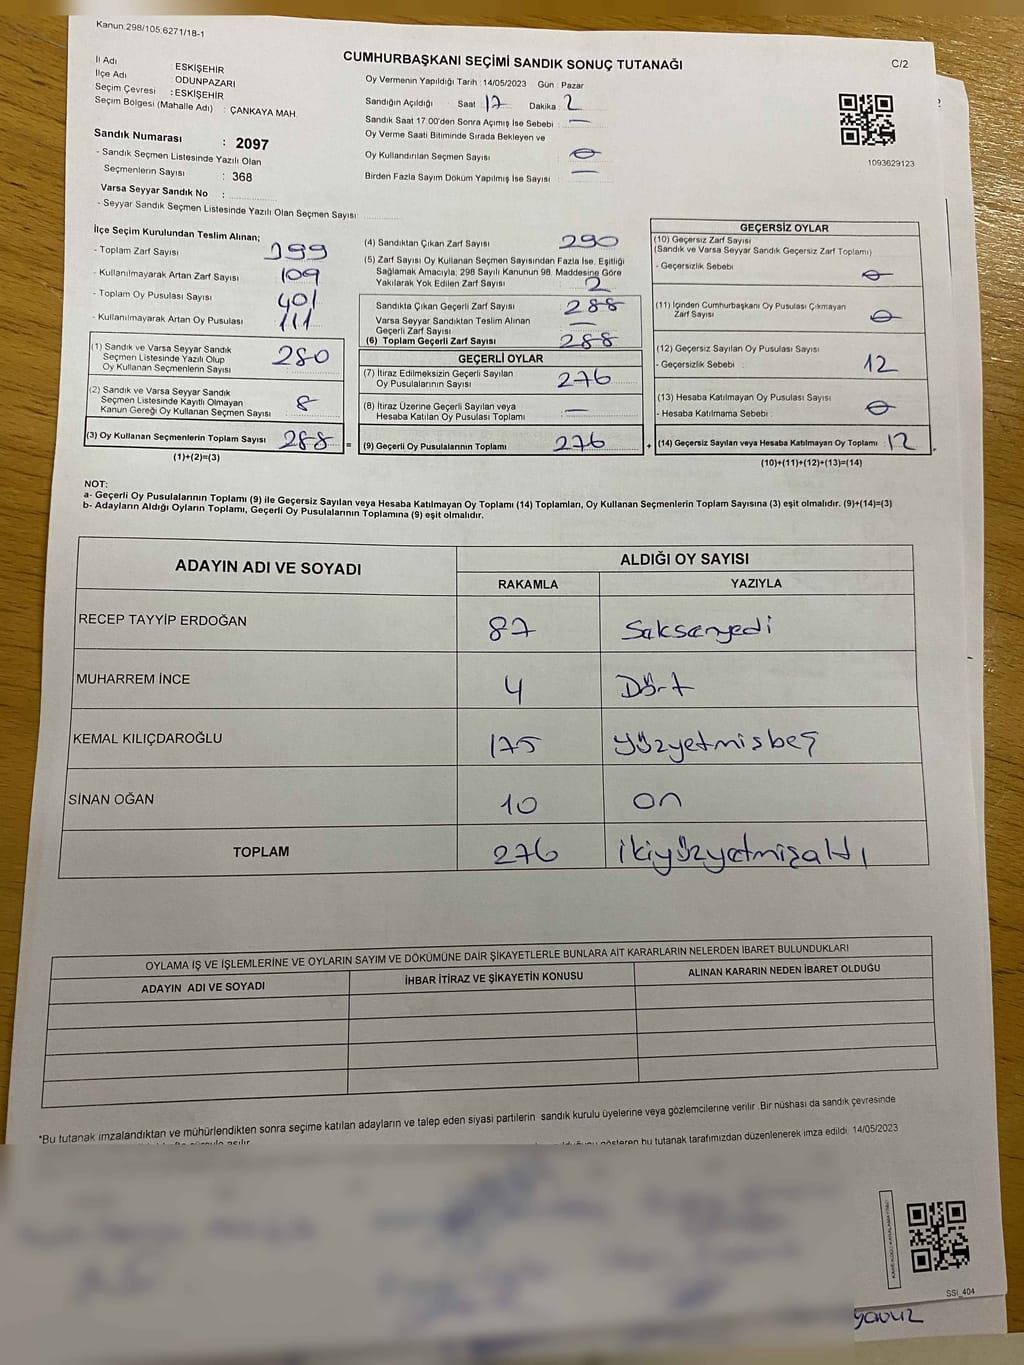 Kanun:298/105.6271/18-1
CUMHURBAŞKANI SEÇİMİ SANDIK SONUÇ TUTANAĞI
C/2
İl Adı : ESKİŞEHİR
İlçe Adı : ODUNPAZARI
Seçim Çevresi : ESKİŞEHİR
Seçim Bölgesi (Mahalle Adı) : ÇANKAYA MAH.
Sandık Numarası : 2097
- Sandık Seçmen Listesinde Yazılı Olan
Seçmenlerin Sayısı : 368
Varsa Seyyar Sandık No :
- Seyyar Sandık Seçmen Listesinde Yazılı Olan Seçmen Sayısı:
Oy Vermenin Yapıldığı Tarih : 14/05/2023 Gün : Pazar
Sandığın Açıldığı : Saat 17 Dakika : 2
Sandık Saat 17:00'den Sonra Açımış İse Sebebi : —
Oy Verme Saati Bitiminde Sırada Bekleyen ve
Oy Kullandırılan Seçmen Sayısı : 0
Birden Fazla Sayım Döküm Yapılmış İse Sayısı : —
1093629123
İlçe Seçim Kurulundan Teslim Alınan;
- Toplam Zarf Sayısı : 399
- Kullanılmayarak Artan Zarf Sayısı : 109
- Toplam Oy Pusulası Sayısı : 401
- Kullanılmayarak Artan Oy Pusulası : 111
(1) Sandık ve Varsa Seyyar Sandık
Seçmen Listesinde Yazılı Olup
Oy Kullanan Seçmenlerin Sayısı : 280
(2) Sandık ve Varsa Seyyar Sandık
Seçmen Listesinde Kayıtlı Olmayan
Kanun Gereği Oy Kullanan Seçmen Sayısı : 8
(3) Oy Kullanan Seçmenlerin Toplam Sayısı : 288
(1)+(2)=(3)
(4) Sandıktan Çıkan Zarf Sayısı : 290
(5) Zarf Sayısı Oy Kullanan Seçmen Sayısından Fazla İse, Eşitliği
Sağlamak Amacıyla, 298 Sayılı Kanunun 98. Maddesine Göre
Yakılarak Yok Edilen Zarf Sayısı : 2
Sandıkta Çıkan Geçerli Zarf Sayısı : 288
Varsa Seyyar Sandıktan Teslim Alınan
Geçerli Zarf Sayısı : —
(6) Toplam Geçerli Zarf Sayısı : 288
GEÇERLİ OYLAR
(7) İtiraz Edilmeksizin Geçerli Sayılan
Oy Pusulalarının Sayısı : 276
(8) İtiraz Üzerine Geçerli Sayılan veya
Hesaba Katılan Oy Pusulası Toplamı : —
= (9) Geçerli Oy Pusulalarının Toplamı : 276
GEÇERSİZ OYLAR
(10) Geçersiz Zarf Sayısı
(Sandık ve Varsa Seyyar Sandık Geçersiz Zarf Toplamı)
- Geçersizlik Sebebi : 0
(11) İçinden Cumhurbaşkanı Oy Pusulası Çıkmayan
Zarf Sayısı : 0
(12) Geçersiz Sayılan Oy Pusulası Sayısı
- Geçersizlik Sebebi : 12
(13) Hesaba Katılmayan Oy Pusulası Sayısı
- Hesaba Katılmama Sebebi : 0
+ (14) Geçersiz Sayılan veya Hesaba Katılmayan Oy Toplamı : 12
(10)+(11)+(12)+(13)=(14)
NOT:
a- Geçerli Oy Pusulalarının Toplamı (9) ile Geçersiz Sayılan veya Hesaba Katılmayan Oy Toplamı (14) Toplamları, Oy Kullanan Seçmenlerin Toplam Sayısına (3) eşit olmalıdır. (9)+(14)=(3)
b- Adayların Aldığı Oyların Toplamı, Geçerli Oy Pusulalarının Toplamına (9) eşit olmalıdır.
ADAYIN ADI VE SOYADI
ALDIĞI OY SAYISI
RAKAMLA YAZIYLA
RECEP TAYYİP ERDOĞAN 87 Seksenyedi
MUHARREM İNCE 4 Dört
KEMAL KILIÇDAROĞLU 175 Yüzyetmisbeş
SİNAN OĞAN 10 on
TOPLAM 276 ikiyüzyetmişaltı
OYLAMA İŞ VE İŞLEMLERİNE VE OYLARIN SAYIM VE DÖKÜMÜNE DAİR ŞİKAYETLERLE BUNLARA AİT KARARLARIN NELERDEN İBARET BULUNDUKLARI
ADAYIN ADI VE SOYADI İHBAR İTİRAZ VE ŞİKAYETİN KONUSU ALINAN KARARIN NEDEN İBARET OLDUĞU
*Bu tutanak imzalandıktan ve mühürlendikten sonra seçime katılan adayların ve talep eden siyasi partilerin sandık kurulu üyelerine veya gözlemcilerine verilir. Bir nüshası da sandık çevresinde
gösteren bu tutanak tarafımızdan düzenlenerek imza edildi. 14/05/2023
SSI_404
yavuz